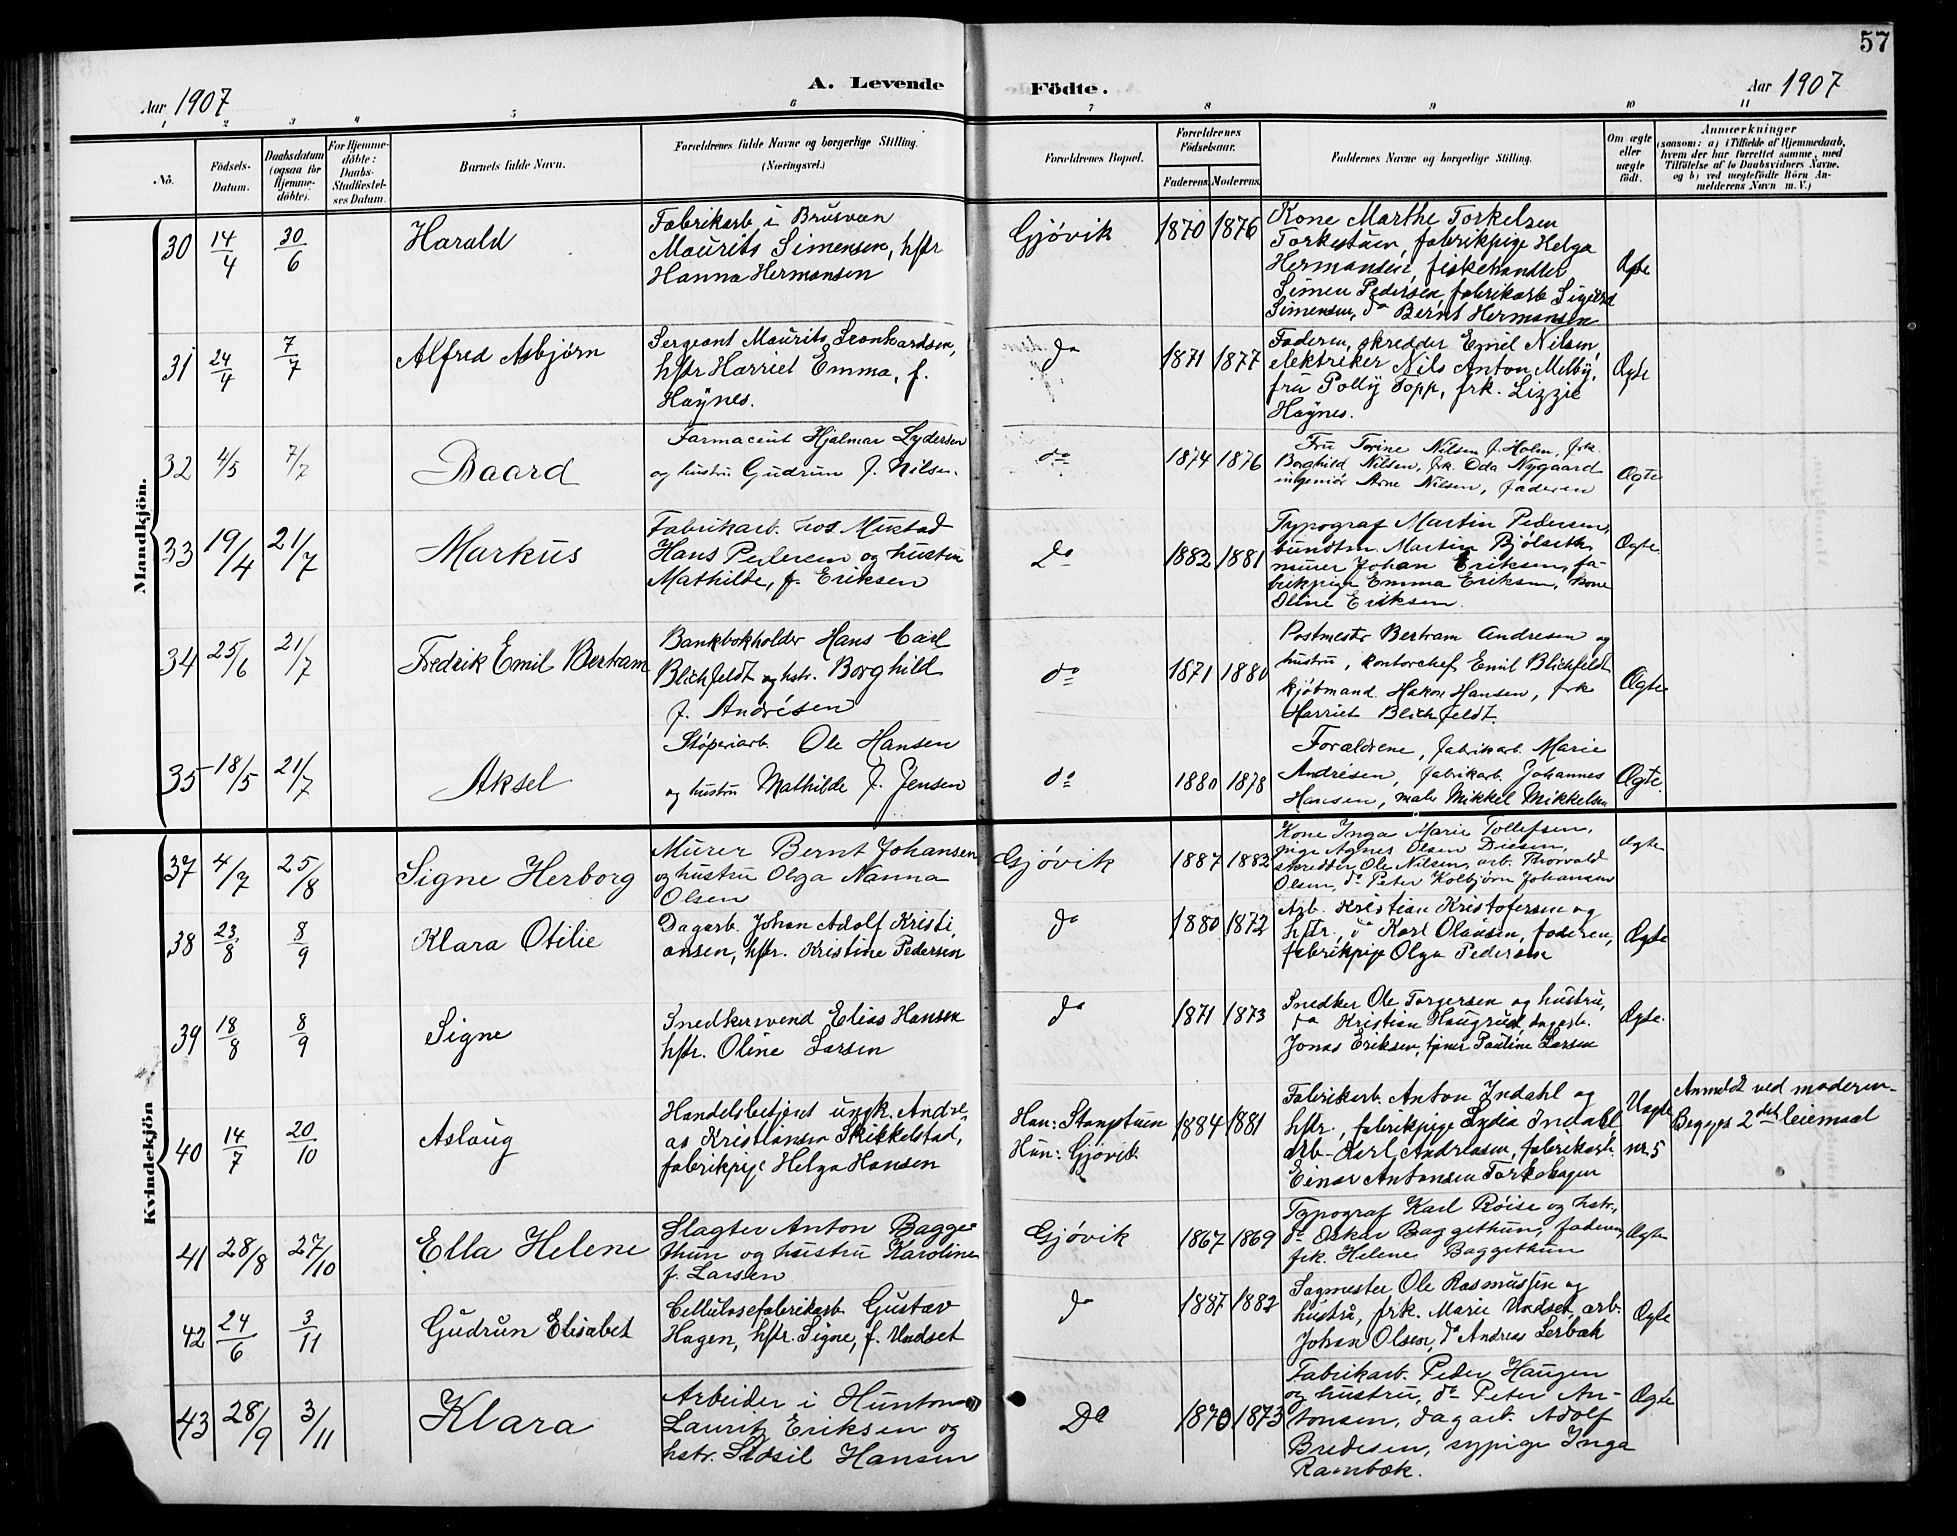 57
A. Levende Födte.
Aar 1907
Aar 1907
1 2 3 4 5 6 7 8 9 10 11
No.
Födsels-Datum.
Daabsdatum (ogsaa for Hjemme-döbte).
For Hjemme-döbte: Daabs-Stadfæstel-ses Datum.
Barnets fulde Navn.
Forældrenes fulde Navne og borgerlige Stilling. (Næringsvei.)
Forældrenes Bopæl.
Forældrenes Födselsaar.
Faderens. Moderens.
Faddernes Navne og borgerlige Stilling.
Om ægte eller uægte födt.
Anmærkninger
(saasom: a) i Tilfælde af Hjemmedaab,
hvem der har forrettet samme, med
Tilföielse af to Daabsvidners Navne.
og b) ved uægtefödte Börn An-
melderens Navn m. V.)
Mandkjön.
30 14/4 30/6 Harald
Fabrikarb. i Brusvæn
Maurits Simensen, hstr
Hanna Hermansen
Gjøvik 1870 1876
Kone Marthe Torkelsen
Torkestuen, fabrikpige Helga
Hermansen, fiskehandler
Simen Pedersen, fabrikarb Sigurd
Simensen, do Bernt Hermansen
Ægte
31 24/4 7/7 Alfred Asbjørn
Sergeant Maurits Leonhardsen,
hstr Harriet Emma, f.
Haynes.
do 1871 1877
Faderen, skredder Emil Nilsen,
elektriker Nils Anton Melby,
fru Polly Topp, frk. Lizzie
Haynes.
Ægte
32 4/5 7/7 Baard
Farmaceut Hjalmar Lydersen
og hustru Gudrun f. Nilsen.
do 1874 1876
Fru Torine Nilsen f. Holm, frk.
Borghild Nilsen, frk. Oda Nygaard
ingeniør Arne Nilsen, faderen
Ægte
33 19/4 21/7 Markus
Fabrikarb. hos Mustad
Hans Pedersen og hustru
Mathilde, f. Eriksen
Do 1882 1881
Typograf Martin Pedersen,
bundtm. Martin Bjølseth,
murer Johan Eriksen, fa-
brikpige Emma Eriksen, kone
Oline Eriksen.
Ægte
34 25/6 21/7 Fredrik Emil Bertram
Bankbokholder Hans Carl
Blichfeldt og hstr. Borghild
f. Andrésen
do 1871 1880
Postmester Bertram Andresen og
hustru, kontorchef Emil Blichfeldt
kjøbmand Hakon Hansen, frk
Harriet Blichfeldt.
Ægte
35 18/5 21/7 Aksel
Støperiarb. Ole Hansen
og hustru Mathilde f. Jensen
do 1880 1878
Forældrene, fabrikarb. Marie
Andrésen, fabrikarb. Johannes
Hansen, maler Mikkel Mikkelsen
Ægte.
Kvindekjön
37 4/7 25/8 Signe Herborg
Murer Bernt Johansen
og hustru Olga Nanna
Olsen
Gjøvik 1887 1882
Kone Inga Marie Tollefsen,
pige Agnes Olsen Diesen,
skredder Ole Nilsen, arb. Thorvald
Olsen, do Peter Kolbjørn Johansen
Ægte
38 23/8 8/9 Klara Otilie
Dagarb. Johan Adolf Kristi,
ansen, hstr. Kristine Pedersen
do 1880 1872
Arb. Kristian Kristofersen og
hstr. do Karl Olausen, faderen,
fabrikpige Olga Pedersen
Ægte
39 18/8 8/9 Signe
Snedkersvend Elias Hansen
hstr. Oline Larsen
do 1871 1873
Snedker Ole Torgersen og hustru,
do Kristian Haugrud, dagarb.
Jonas Eriksen, tjener Pauline Larsen
Ægte.
40 14/7 20/10 Aslaug
Handelsbetjent ungk. Andre,
as Kristiansen Skikkelstad,
fabrikpige Helga Hansen
Han: Stamptuen
Hun: Gjøvik
1884 1881
Fabrikarb. Anton Indahl og
hstr., fabrikpige Lydia Indahl
arb- Karl Andreasen, fabrikarb.
Einar Antonsen Torkehagen
Uægte
nr. 5
Anmeldt ved moderen-
Begges 2det leiemaal
41 28/8 27/10 Ella Helene
Slagter Anton Bagge
thun og hustru Karoline
f. Larsen
Gjøvik 1867 1869
Typograf Karl Røise og hstr.,
do Oskar Baggethun, faderen,
frk. Helene Baggethun
Ægte
42 24/6 3/11 Gudrun Elisabet
Cellulosefabrikarb. Gustav
Hagen, hstr. Signe, f. Undset
do 1887 1882
Sagmester Ole Rasmussen og
hustru, frk. Marie Undset, arb.
Johan Olsen, do Andreas Lerbæk
Ægte
43 28/9 3/11 Klara
Arbeider i Hunton
Lauritz Eriksen og
hstr. Sidsil Hansen
Do 1870 1873
Fabrikarb. Peder Haugen
og hustru, do Peter An-
tonsen, dagarb. Adolf
Bredesen, sypige Inga
Rambæk.
Ægte